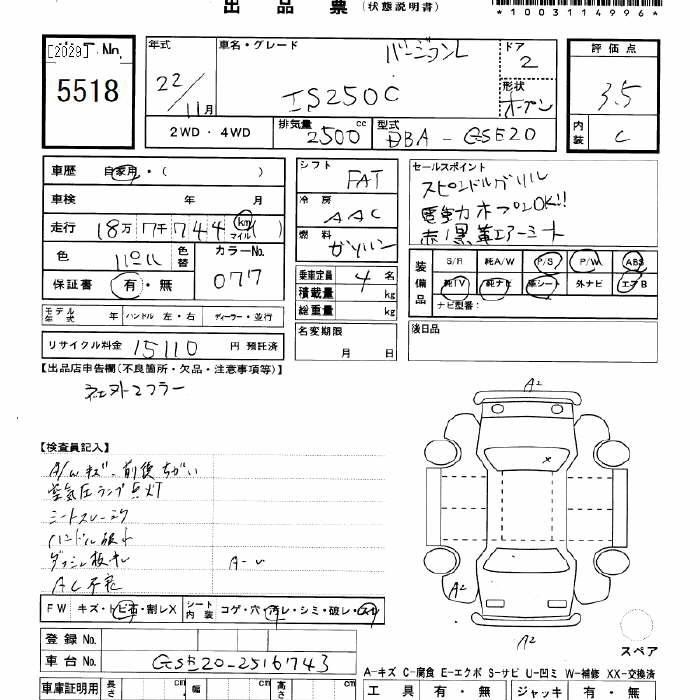 出品票 (状態説明書)
*1003114996*
[2029] No.
5518
年式 22/11月
車名・グレード バージョンL
IS250C
ドア 2
形状 オープン
評価点 3.5
内装 C
2WD・4WD
排気量 2500 cc
型式 DBA-GSE20
車歴 自家用・( )
車検 年 月
走行 18万7千744 (km マイル)
色 パール 色替
カラーNo. 077
保証書 有・無
モデル年式 年 ハンドル 左・右 ディーラー・並行
リサイクル料金 15110 円 預託済
シフト FAT
冷房 AAC
燃料 ガソリン
乗車定員 4 名
積載量 kg
総重量 kg
名変期限 月 日
セールスポイント
スピンドルグリル
電動オープンOK!!
赤/黒革エアーシート
装備品 S/R 純A/W P/S P/W ABS
純TV 純ナビ 革シート 外ナビ エアB
ナビ型番:
後日品
【出品店申告欄(不良箇所・欠品・注意事項等)】
社外マフラー
【検査員記入】
A/Wキズ、前後ちがい
空気圧ランプ点灯
シートスレ
ハンドル
ダッシュ板キレ
AC不良
A-U
FW キズ・トビ石・割レX
シート内装 コゲ・穴・汚レ・シミ・破レ・スレ
登録No.
車台No. GSE20-2516743
車庫証明用 長さ cm 幅 cm 高さ cm
A2
X
A2
A2
スペア
A-キズ C-腐食 E-エクボ S-サビ U-凹ミ W-補修 XX-交換済
工具 有・無 ジャッキ 有・無